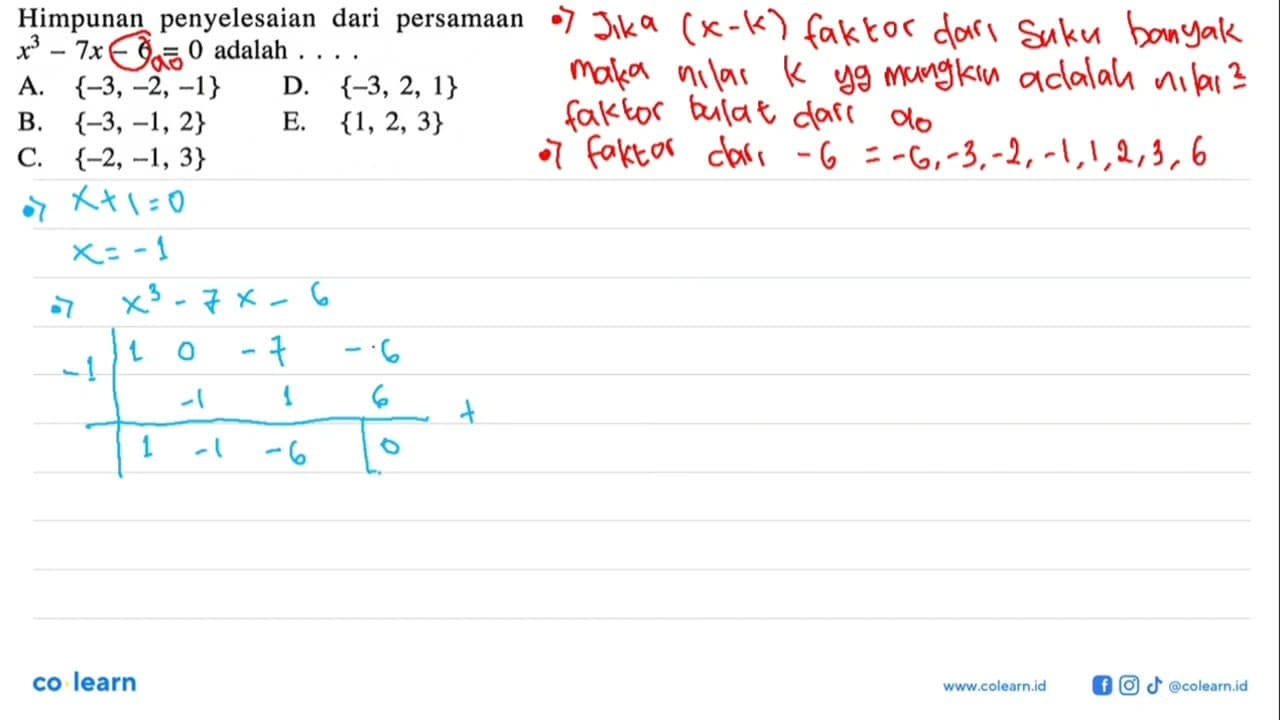 Himpunan penyelesaian dari persamaan
x³ – 7x – 6 = 0 adalah . . . .
a₀
A. {–3, –2, –1} D. {–3, 2, 1}
B. {–3, –1, 2} E. {1, 2, 3}
C. {–2, –1, 3}
•⁊ Jika (x-k) faktor dari suku banyak
maka nilai k yg mungkin adalah nilai²
faktor bulat dari a₀
•⁊ faktor dari -6 = -6, -3, -2, -1, 1, 2, 3, 6
•⁊ x+1=0
x = -1
•⁊ x³ - 7x - 6
-1 | 1 0 -7 -6
-1 1 6 +
1 -1 -6 | 0
co learn
www.colearn.id @colearn.id